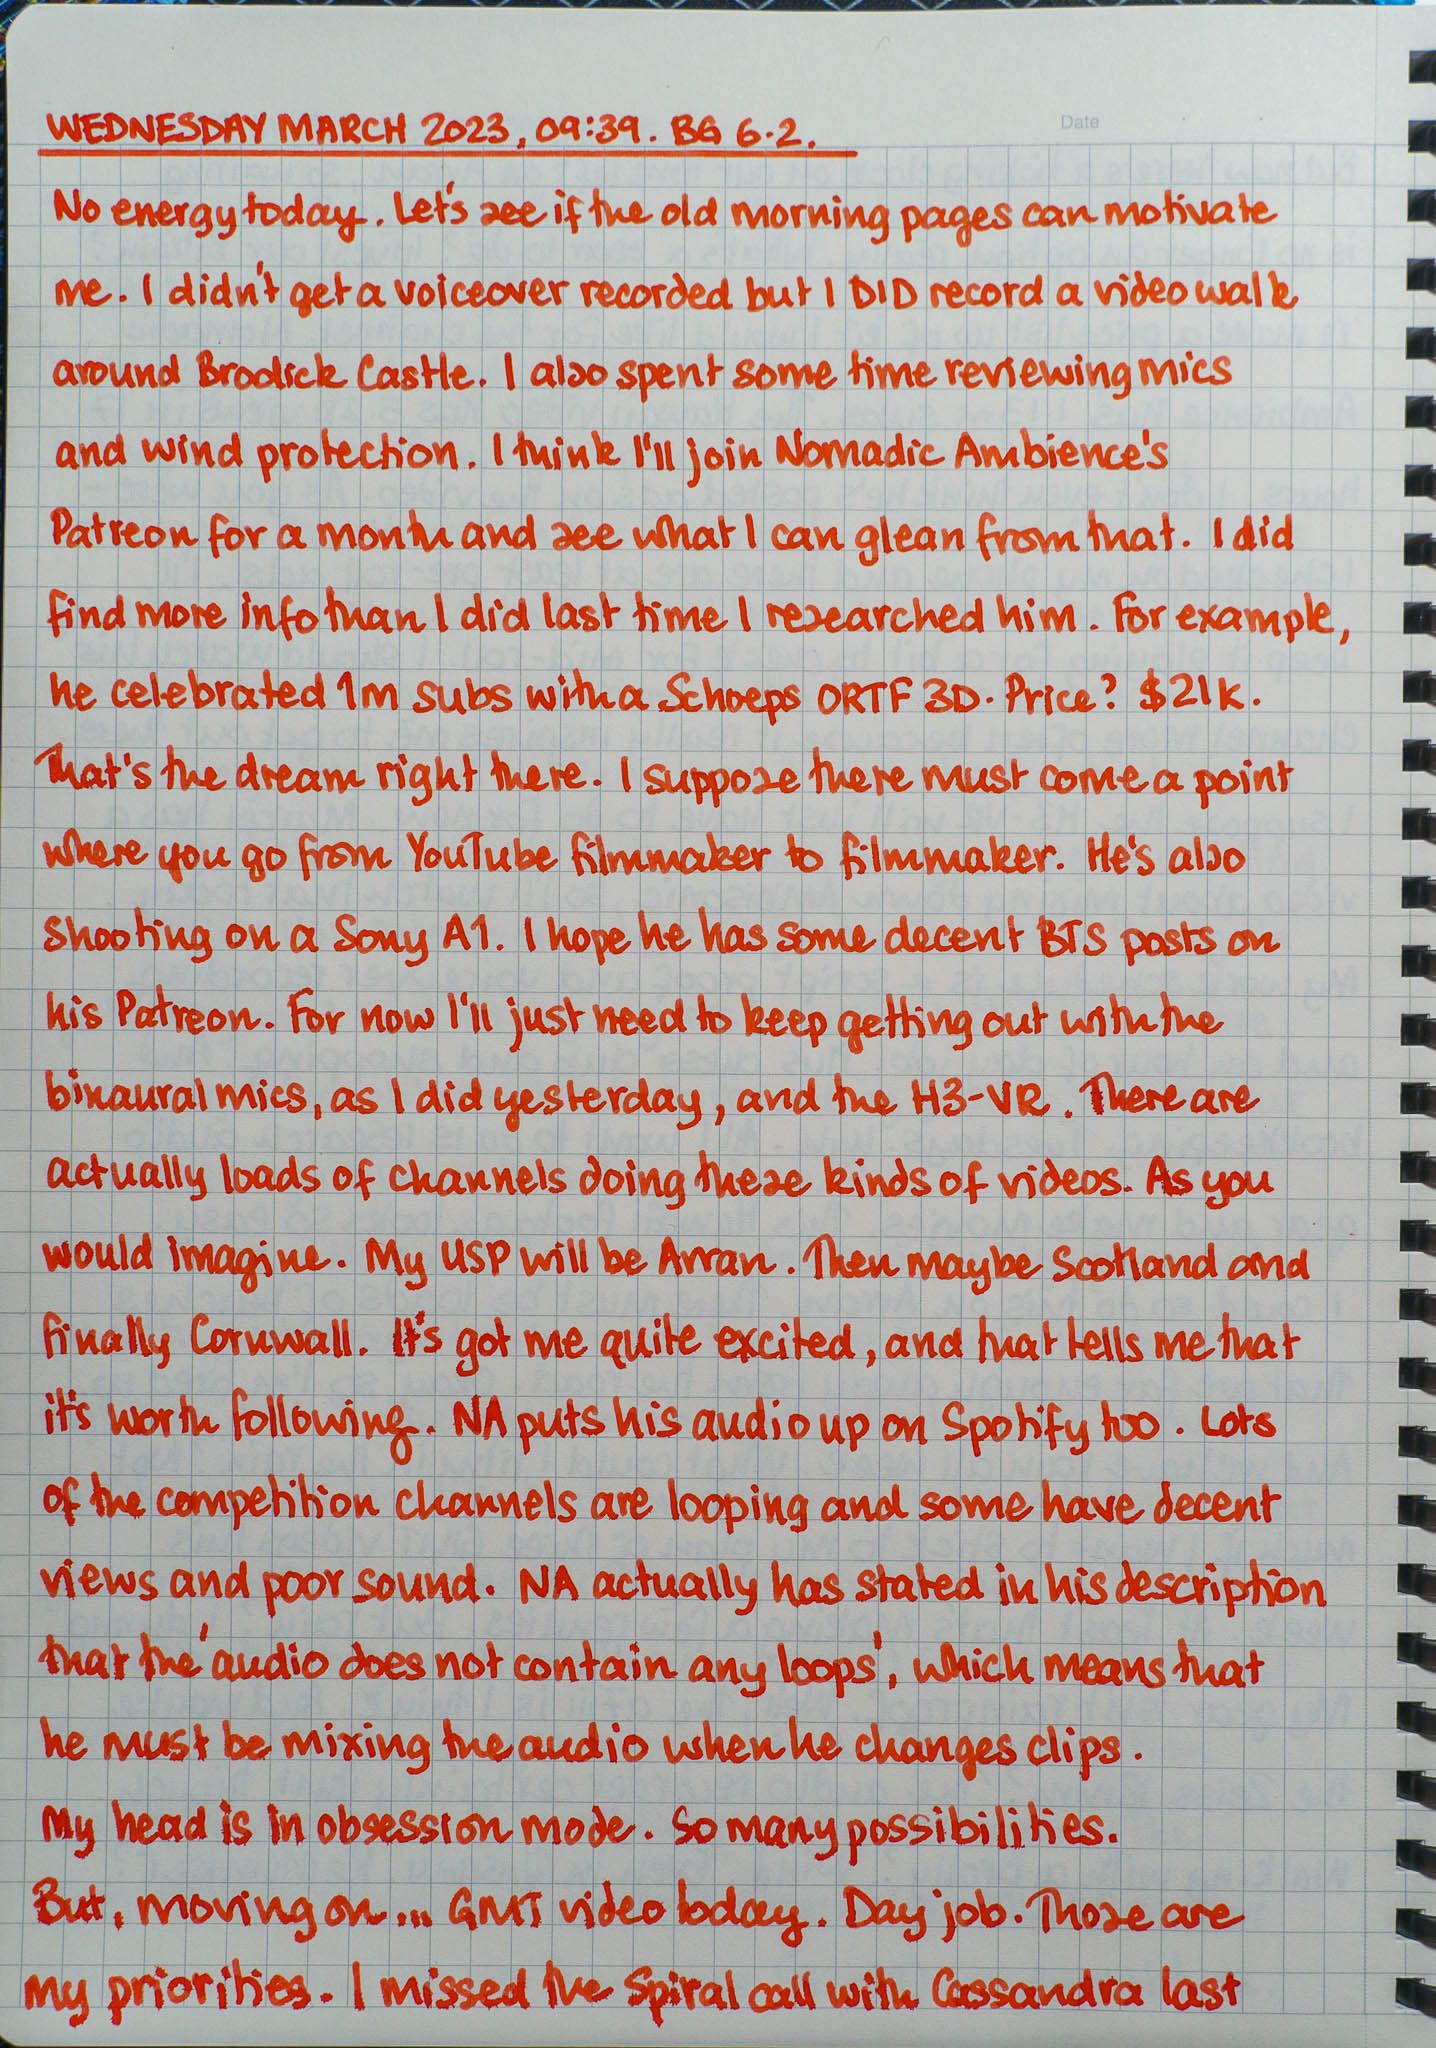 WEDNESDAY MARCH 2023, 09:39. BG 6.2.
Date
No energy today. Let's see if the old morning pages can motivate
me. I didn't get a voiceover recorded but I DID record a video walk
around Brodick Castle. I also spent some time reviewing mics
and wind protection. I think I'll join Nomadic Ambience's
Patreon for a month and see what I can glean from that. I did
find more info than I did last time I researched him. For example,
he celebrated 1m subs with a Schoeps ORTF 3D. Price? $21k.
That's the dream right there. I suppose there must come a point
where you go from YouTube filmmaker to filmmaker. He's also
shooting on a Sony A1. I hope he has some decent BTS posts on
his Patreon. For now I'll just need to keep getting out with the
binaural mics, as I did yesterday, and the H3-VR. There are
actually loads of channels doing these kinds of videos. As you
would imagine. My USP will be Arran. Then maybe Scotland and
finally Cornwall. It's got me quite excited, and that tells me that
it's worth following. NA puts his audio up on Spotify too. Lots
of the competition channels are looping and some have decent
views and poor sound. NA actually has stated in his description
that the 'audio does not contain any loops', which means that
he must be mixing the audio when he changes clips.
My head is in obsession mode. So many possibilities.
But, moving on... GMT video today. Day job. Those are
my priorities. I missed the Spiral call with Cassandra last